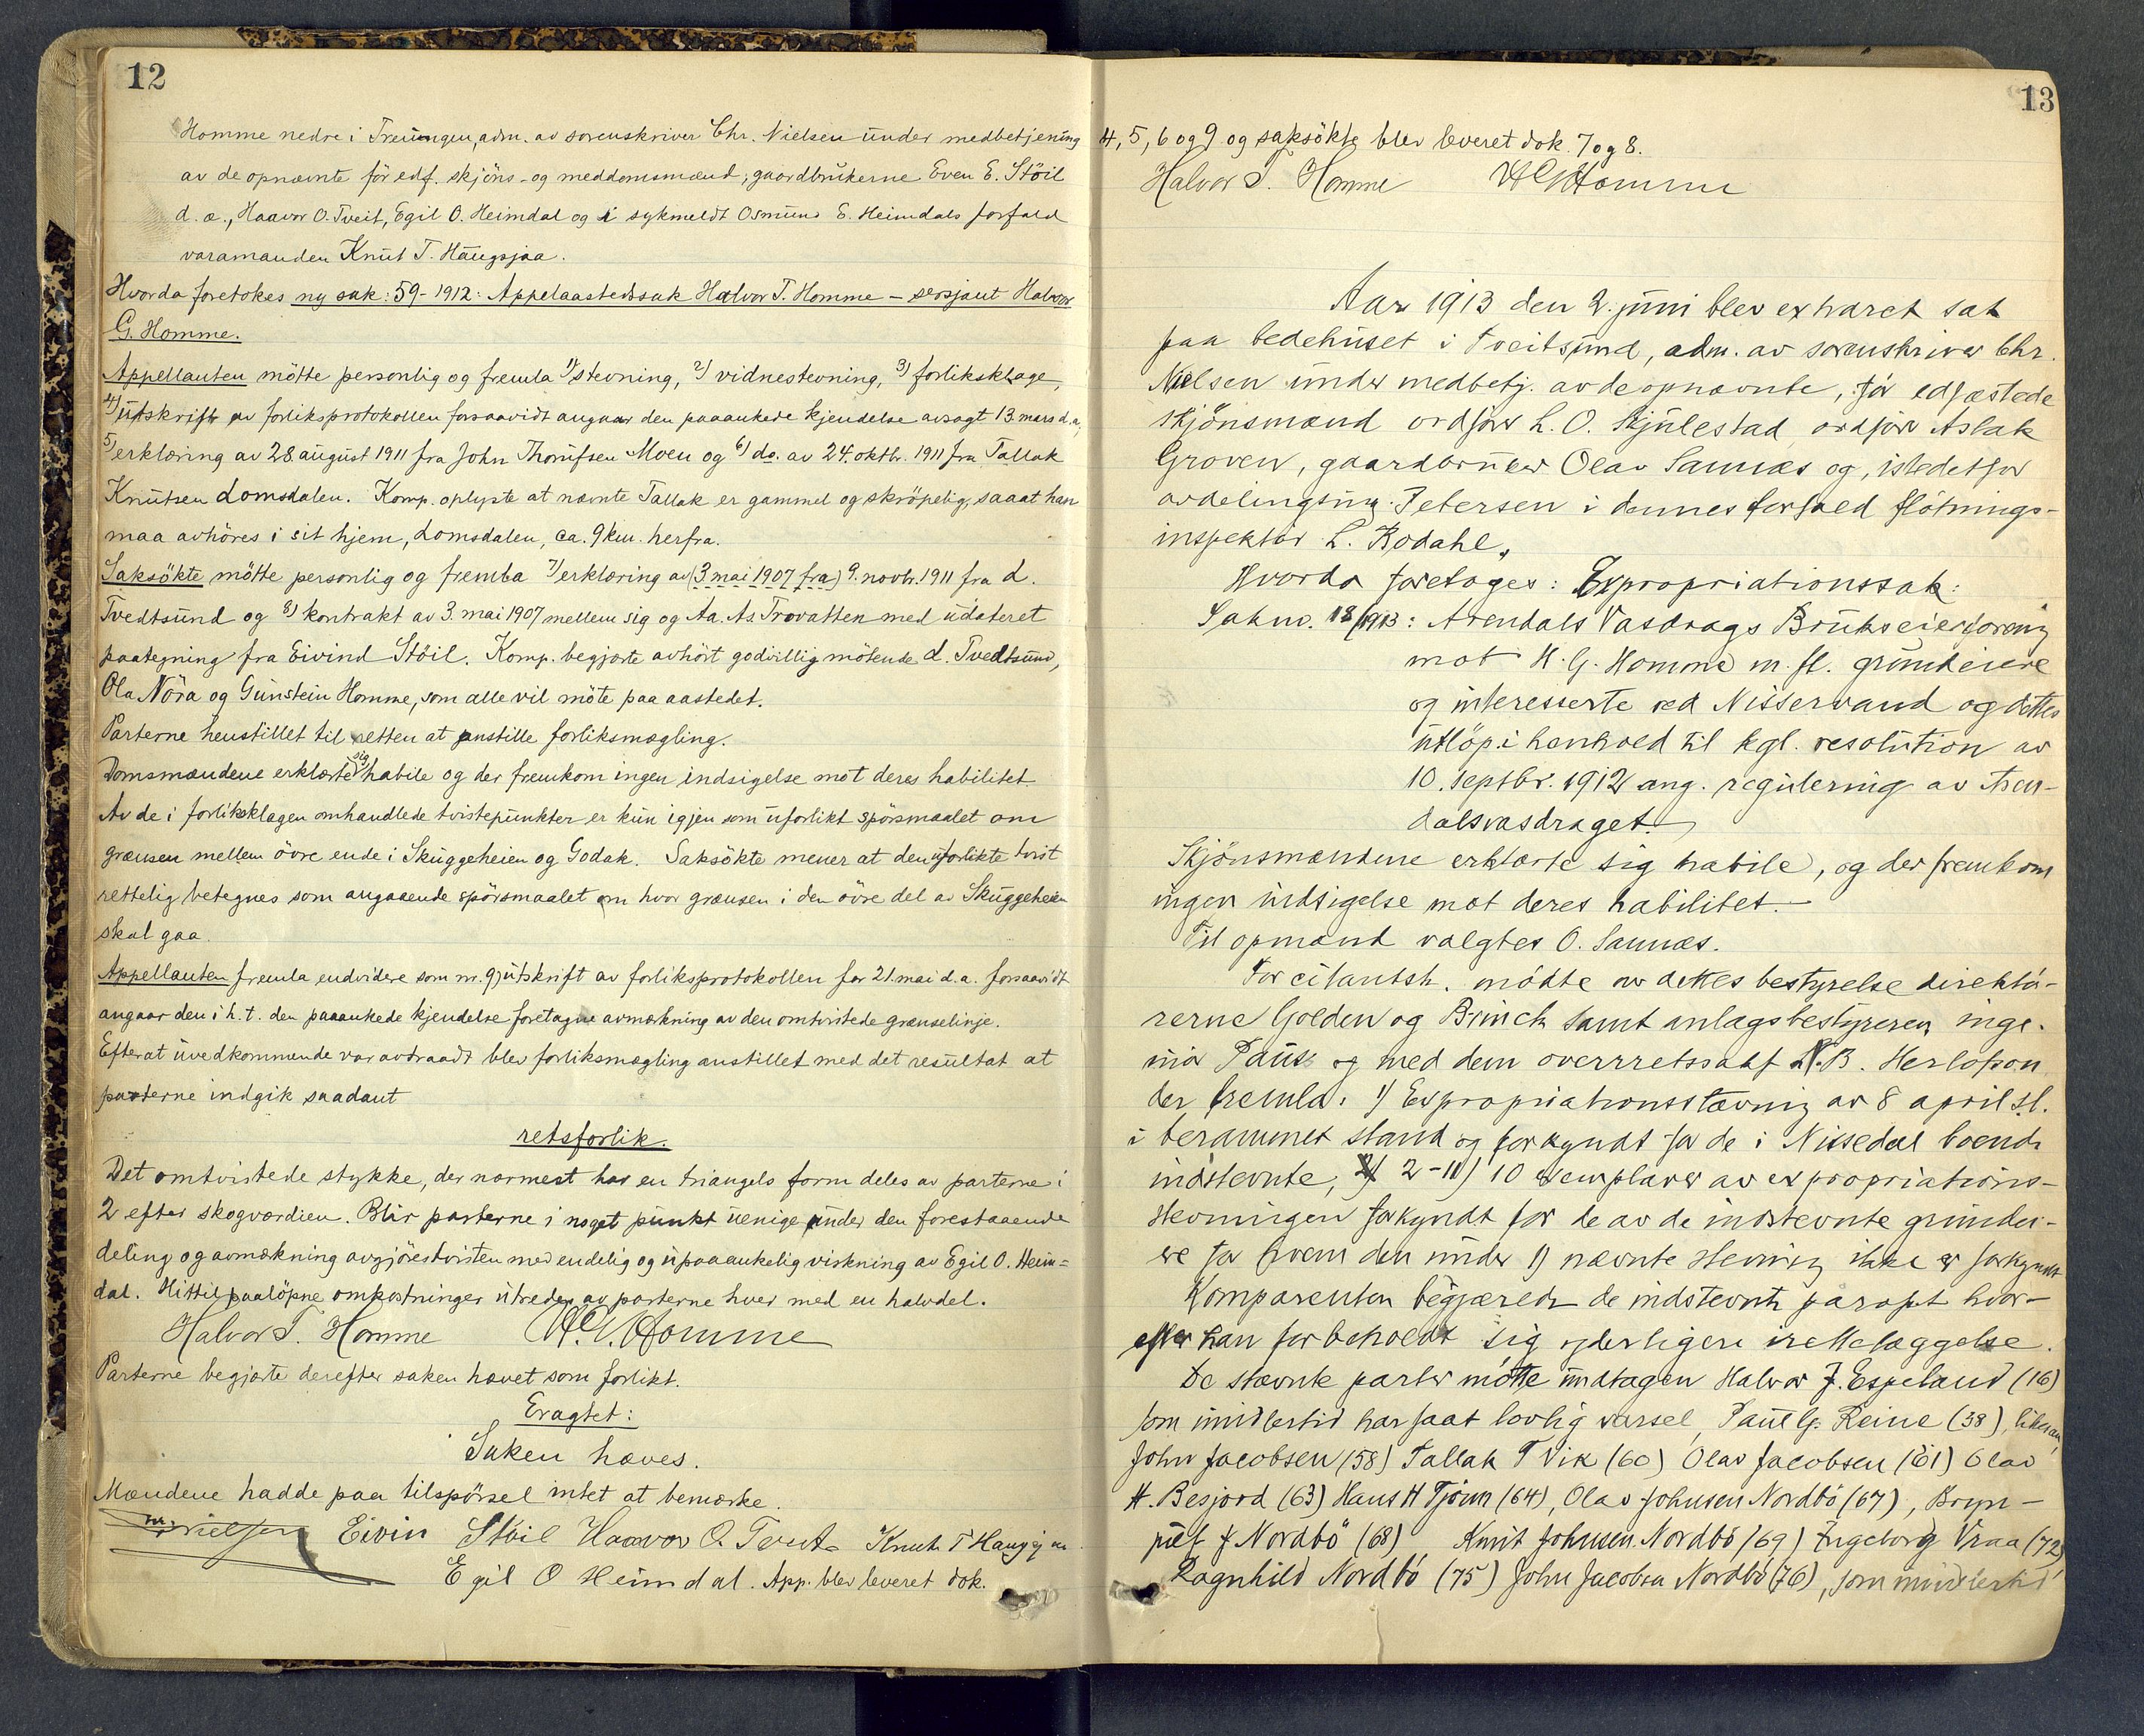 12
Homme nedre i Treungen, adm. av sorenskriver Chr. Nielsen under medbetjening
av de opnævnte för edf. skjöns- og meddomsmænd, gaardbrukerne Even E. Stöil
d. æ., Haavor O. Tveit, Egil O. Heimdal og i sykmeldt Osmund E. Heimdals forfald
varamanden Knut T. Haugsjaa.
Hvorda foretokes ny sak: 59-1912: Appelaastedssak Halvor T. Homme - sersjant Halvor
G. Homme.
Appellanten mötte personlig og fremla 1) stevning, 2) vidnestevning, 3) forliksklage,
4) utskrift av forliksprotokollen forsaavidt angaar den paaankede kjendelse avsagt 13. mars d.a.,
5) erklæring av 28. august 1911 fra John Thorufsen Moen og 6) do. av 24. oktbr. 1911 fra Tallak
Knutsen Lomsdalen. Komp. oplyste at nævnte Tallak er gammel og skröpelig, saaat han
maa avhöres i sit hjem, Lomsdalen, ca. 9 km. herfra.
Saksökte mötte personlig og fremla 7) erklæring av (3 mai 1907 fra) 9. novbr. 1911 fra d.
Tvedtsund og 8) kontrakt av 3. mai 1907 mellem sig og Aa. As. Trovatten med udateret
paategning fra Eivind Stöil. Komp. begjærte avhört godvillig mötende d. Tvedtsund,
Ola Nöra og Gunstein Homme, som alle vil möte paa aastedet.
Parterne henstillet til retten at anstille forliksmægling.
Domsmændene erklærte sig habile og der fremkom ingen indsigelse mot deres habilitet.
Av de i forliksklagen omhandlede tvistepunkter er kun igjen som uforlikt spörsmaalet om
grænsen mellem övre ende i Skuggeheien og Godak. Saksökte mener at den uforlikte tvist
rettelig betegnes som angaaende spörsmaalet om hvor grænsen i den övre del av Skuggeheien
skal gaa.
Appellanten fremla endvidere som nr. 9) utskrift av forliksprotokollen for 21. mai d.a. forsaavidt
angaar den i h.t. den paaankede kjendelse foretagne avmærkning av den omtvistede grænselinje.
Efterat uvedkommende var avtraadt blev forliksmægling anstillet med det resultat at
parterne indgik saadant
retsforlik.
Det omtvistede stykke, der nærmest har en triangels form deles av parterne i
2 efter skogværdien. Blir parterne i noget punkt uenige under den forestaaende
deling og avmærkning avgjöres tvisten med endelig og upaaankelig virkning av Egil O. Heim=
dal. Hittil paalöpne omkostninger utredes av parterne hver med en halvdel.
Halvor T. Homme H. G. Homme
Parterne begjærte derefter saken hævet som forlikt.
Eragtet:
Saken hæves.
Mændene hadde paa tilspörsel intet at bemærke.
Nielsen Eivin Stöil Haavor O. Tveit Knut T Haugsjaa
Egil O Heimdal. App. blev leveret dok.
13
4, 5, 6 og 9 og saksökte blev leveret dok. 7 og 8.
Halvor T. Homme H G Homme
Aar 1913 den 2. juni blev extraret sat
paa bedehuset i Tveitsund, adm. av sorenskriver Chr.
Nielsen under medbetj. av de opnævnte, för edfæstede
skjönsmænd ordförer L. O. Skjulestad, ordförer Aslak
Groven, gaardbruker Olav Sannæs og, istedetfor
avdelingsing. Petersen i dennes forfald flötnings-
inspektör L. Rodahl.
Hvorda foretoges: Expropriationssak:
Sak no. 18/1913: Arendals Vasdrags Brukseierforening
mot H. G. Homme m. fl. grundeiere
og interesserte ved Nisservand og dettes
utlöp i henhold til kgl. resolution av
10. septbr. 1912 ang. regulering av Aren-
dalsvasdraget.
Skjönsmændene erklærte sig habile, og der fremkom
ingen indsigelse mot deres habilitet.
Til opmand valgtes O. Sannæs.
For citantsk. mödte av dettes bestyrelse direktö-
rerne Golden og Brinch samt anlægsbestyreren inge-
niör Paus og med dem overretssakf. N. B. Herlofson
der fremla: 1) Expropriationsstævning av 8 april d.
i berammet stand og forkyndt for de i Nissedal boende
indstevnte, 2-11) 10 exemplarer av expropriations-
stevningen forkyndt for de av de indstevnte grundei-
ere for hvem den under 1) nævnte stevning ikke er forkyndt
Komparenten begjærede de indstevnte paaropt hvor-
efter han forbeholdt sig yderligere irettelæggelse.
De stævnte parter mötte undtagen Halvor J. Espeland (16)
som imidlertid har faat lovlig varsel, Paul G. Reine (38), likesaa,
John Jacobsen (58) Tallak T Vik (60) Olav Jacobsen (61) Olav
H. Besjord (63) Hans H Tjönn (64), Olav Johnsen Nordbö (67), Bryn-
julf J Nordbö (68) Knut Johnsen Nordbö (69) Ingeborg Vraa (72)
Ragnhild Nordbö (75) John Jacobsen Nordbö (76), som imidlertid